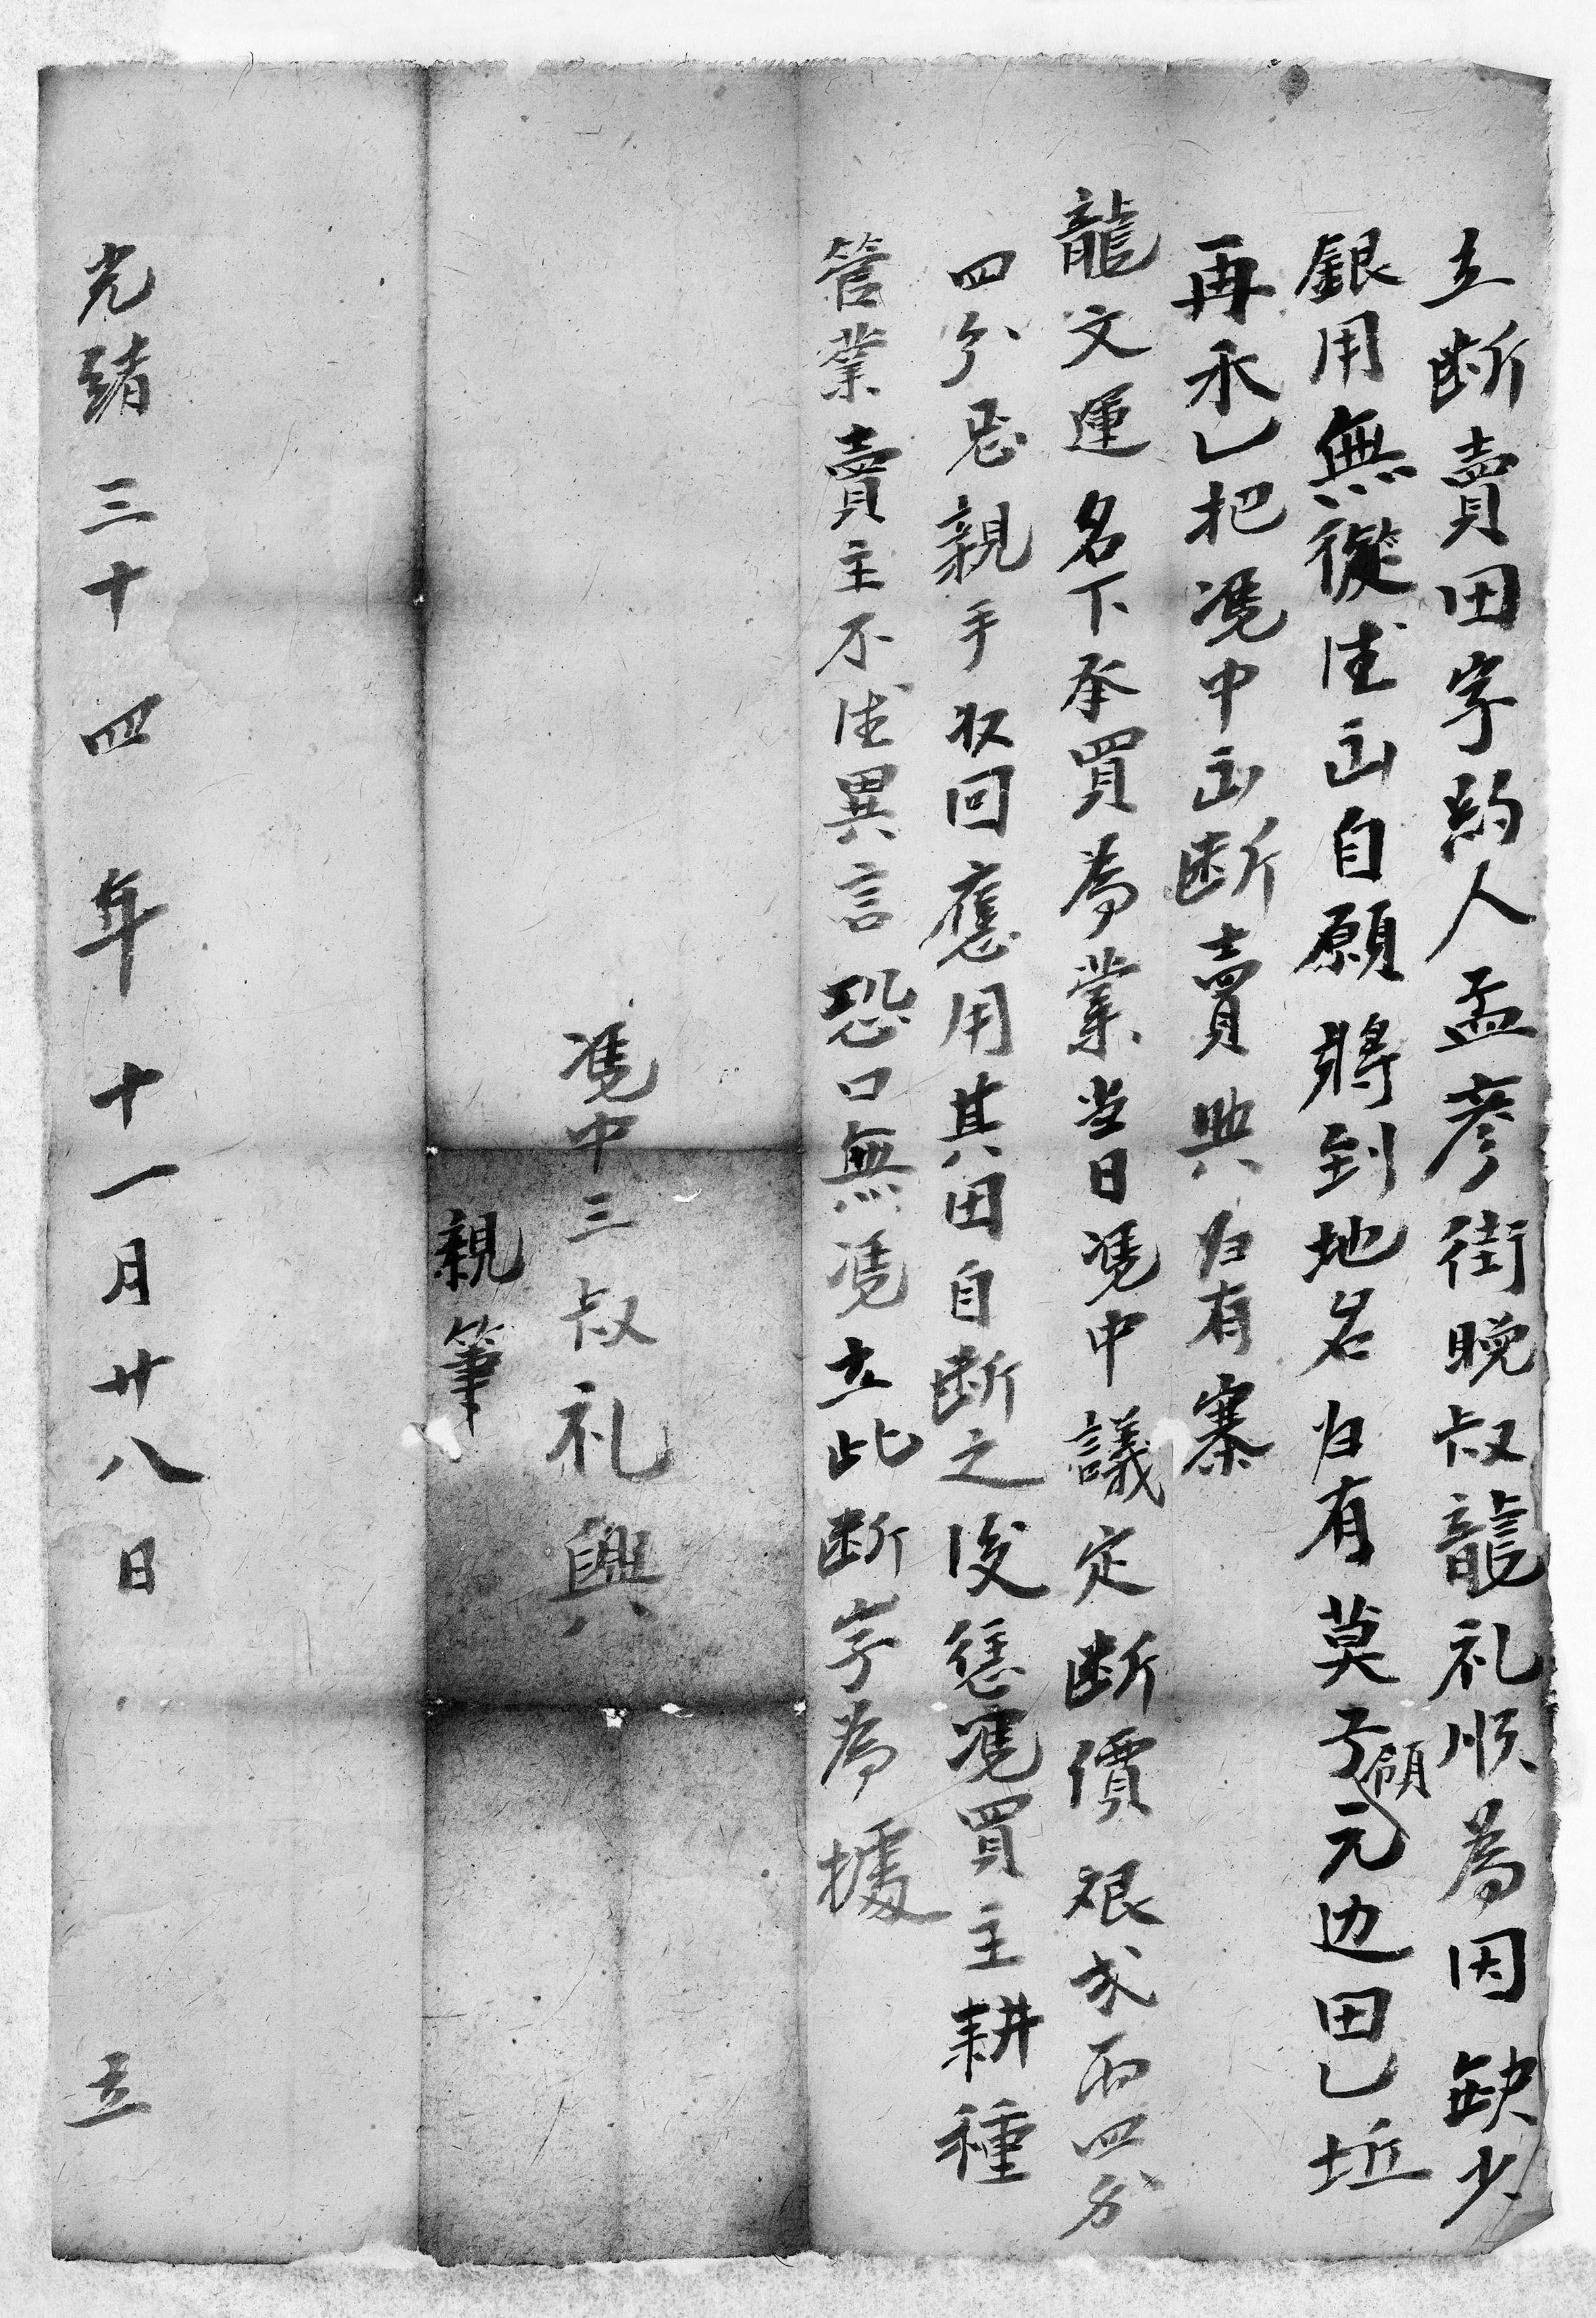 立断賣田字約人孟彦街晚叔龍礼順為因缺少
銀用無從出自願將到地名归有莫子領元边田乚坵
再禾乚把凴中出断賣與归有寨
龍文運名下承買為業当日凴中議定断價艮弍両四分
四分恩親手収回應用其田自断之後恁凴買主耕種
管業賣主不異言恐口無凴立此断字為據
凴中三叔礼興
親筆
光緒三十四年十一月廿八日立